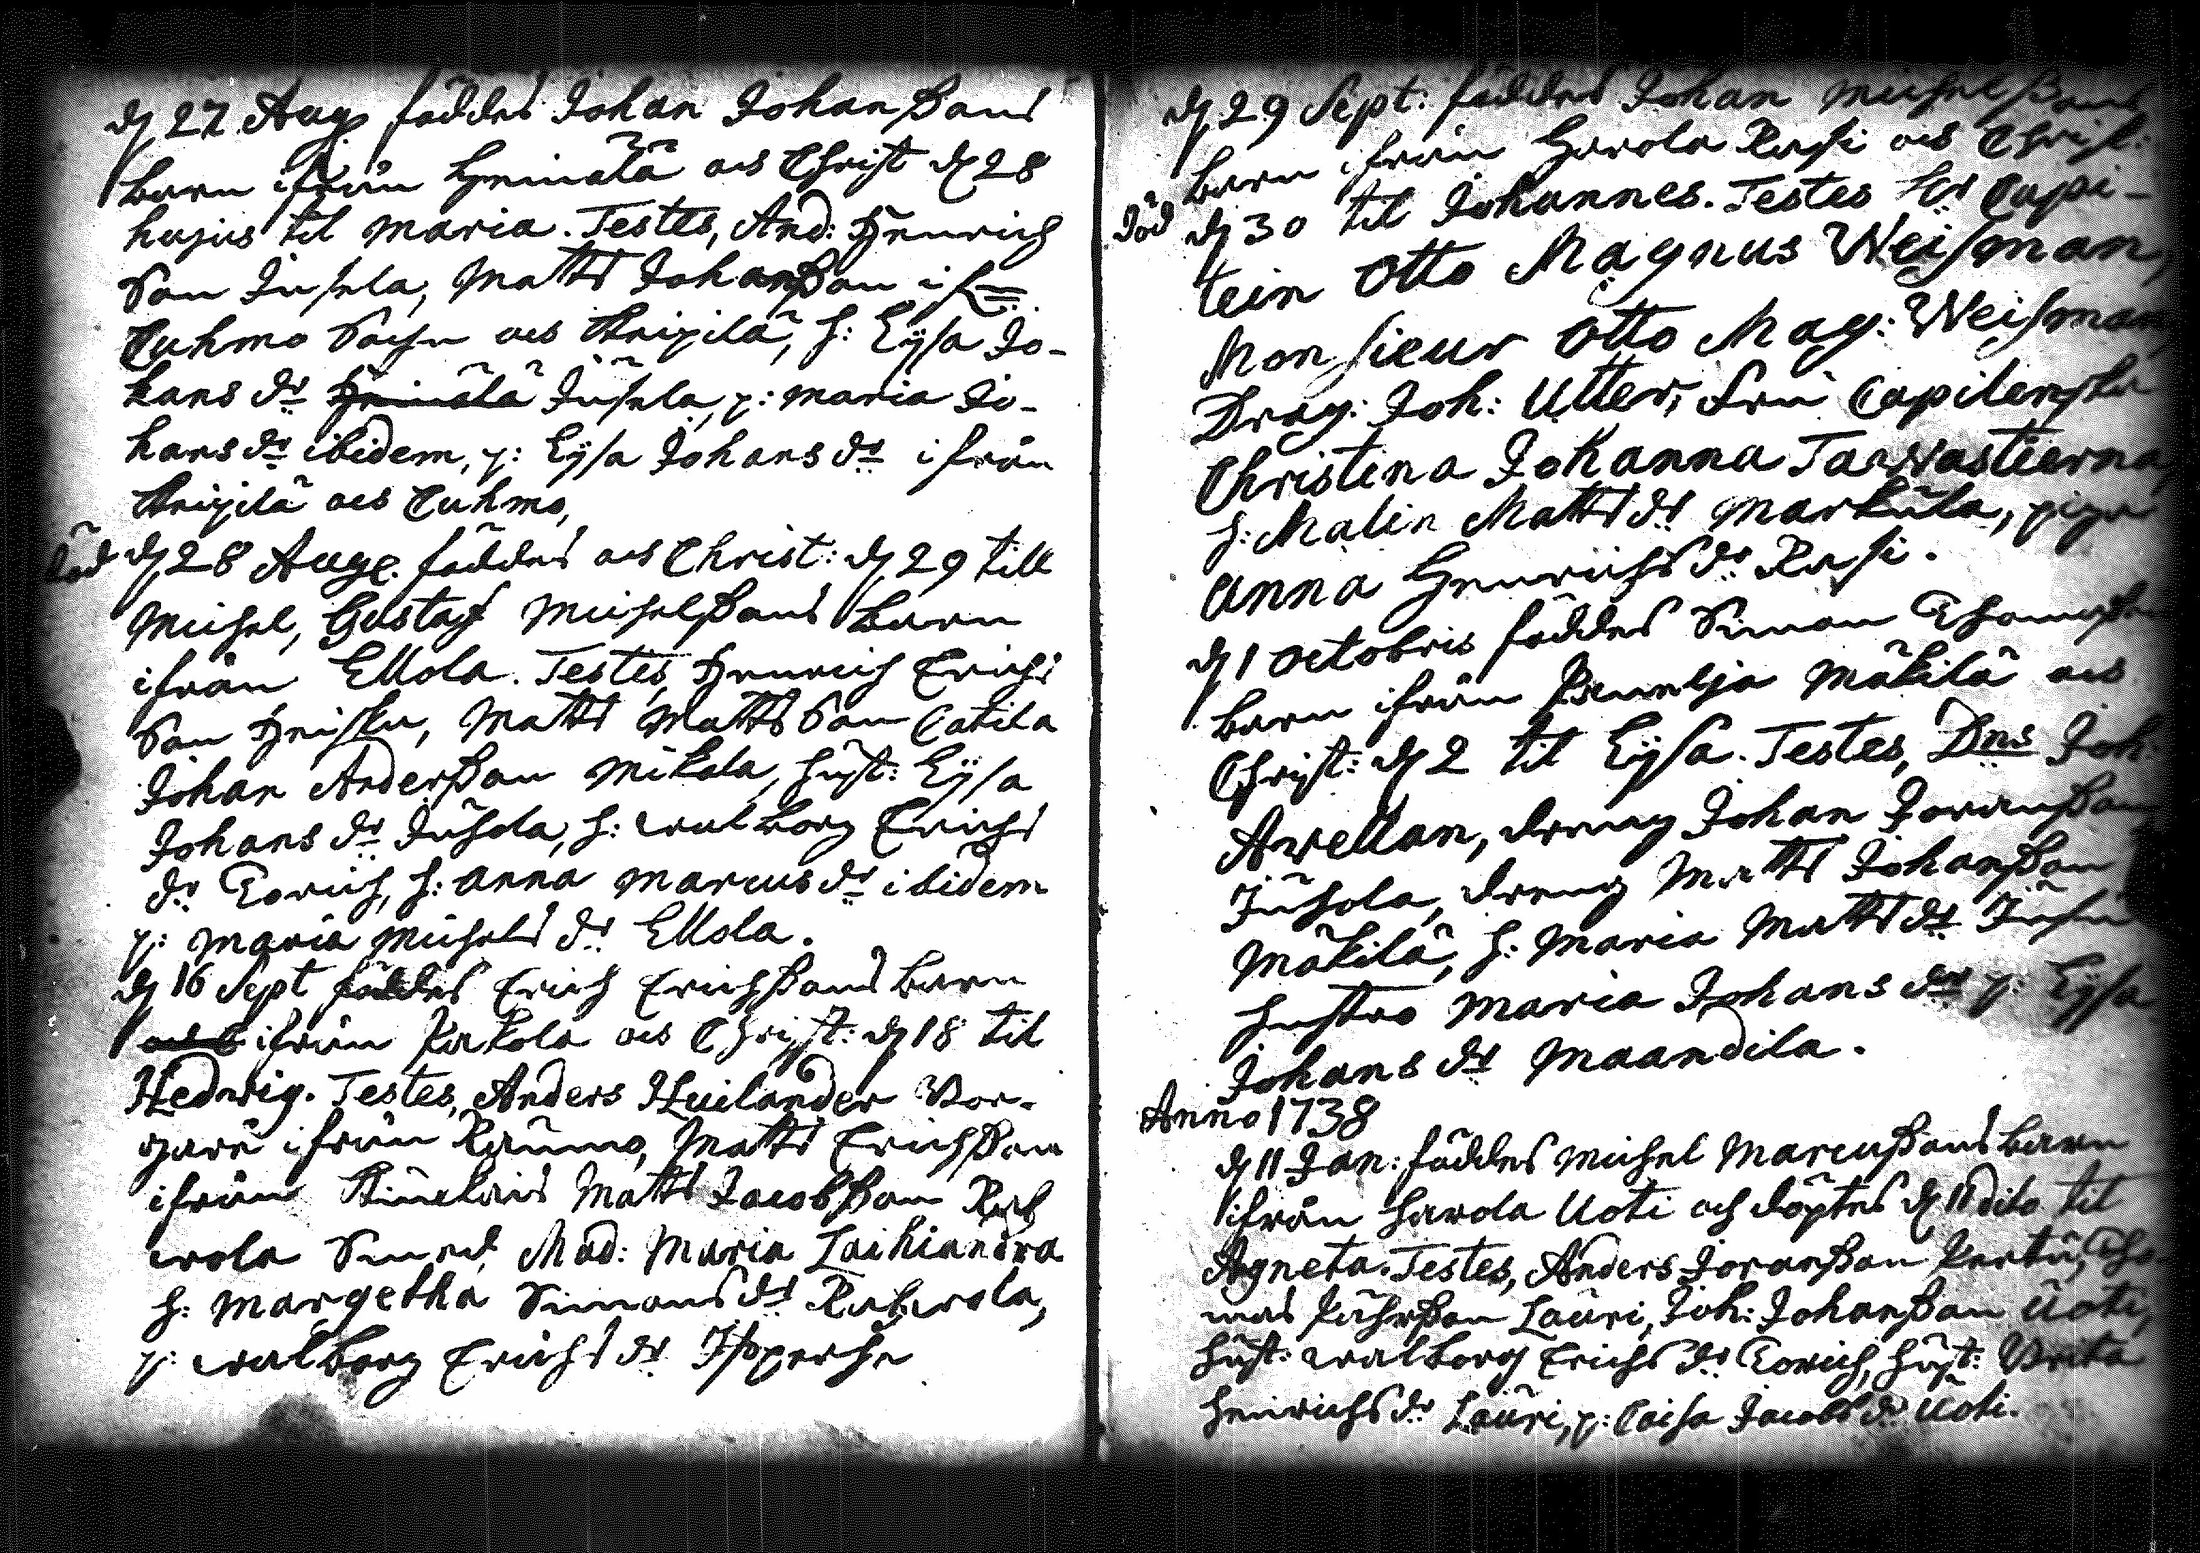 d 27 Aug föddes Johan Johanßons
barn ifrån Heinälä och Christ d 28
hujus til Maria. Testes, And: Henrich
Son Jusela, Matts Johanßon if
Cuhmo Sochn och Kripilä, h: Eÿsa Jo-
hans dr Heinälä Jusela, p: maria Jo-
hans dr ibidem, p: Eÿsa Johans dr ifrån
Kripilä och Cuhmo,
död d 28 Aug. föddes och Christ: d 29 till
Michel, Gustaf Michelßons barn
ifrån Ellola. Testes, Henrich Erichs
Son Heisku, Matts Matts Son Catila
Johan Anderßon Mikola, hust: Eÿsa
Johans dr Juhola, h: walborg Erichs
dr Eorich, h: Anna Marcus dr ibidem
p: Maria Michels dr Ellola.
d 16 Sept föddes Erich Erichßons barn
ifrån Kakola och Christ: d 18 til
Hedwig. Testes, Anders Huilander Bor-
gare ifrån Raumo, Matts Erichßon
ifrån Matts Jacobßon Rah
wola Smed, Mad: Maria Laihiandra
h: Margetha Simons dr Rahwola,
p: walborg Erichs dr
d 29 Sept: föddes Johan Michelßons
barn ifrån Harola Rasi och Christ:
död d 30 til Johannes. Testes Hr Capi-
tein Otto Magnus Weisman,
Monsieur Otto Mag: Weisman,
Drag: Joh: Utter, Fru Capitenska
Christina Johanna Tawastierna,
h: Malin Matts dr Markula, piga
Anna Henrichs dr Rasi.
d 1 octobris föddes Simon Thomaß
barn ifrån Kauelja Mäkilä och
Christ: d 2 til Eÿsa. Testes, Dns Joh:
Awellan, dreng Johan Joranßon
Juhola, dreng Matts Johanßon
Mäkilä, h: Maria Matts dr
hustro Maria Johans dr p: Eÿsa
Johans dr Maandila.
Anno 1738
d 11 Jan: föddes Michel Marcußons barn
ifrån Harola Uoti och döptes d 11 dito til
Agneta. Testes, Anders Joranßon Kertu, Tho
mas Lauri, Joh: Johanßon Uoti,
hust: walborg Erichs dr Eorich, hust: Brita
Heinrichs dr Lauri, p: Caisa Jacobs dr Uoti.